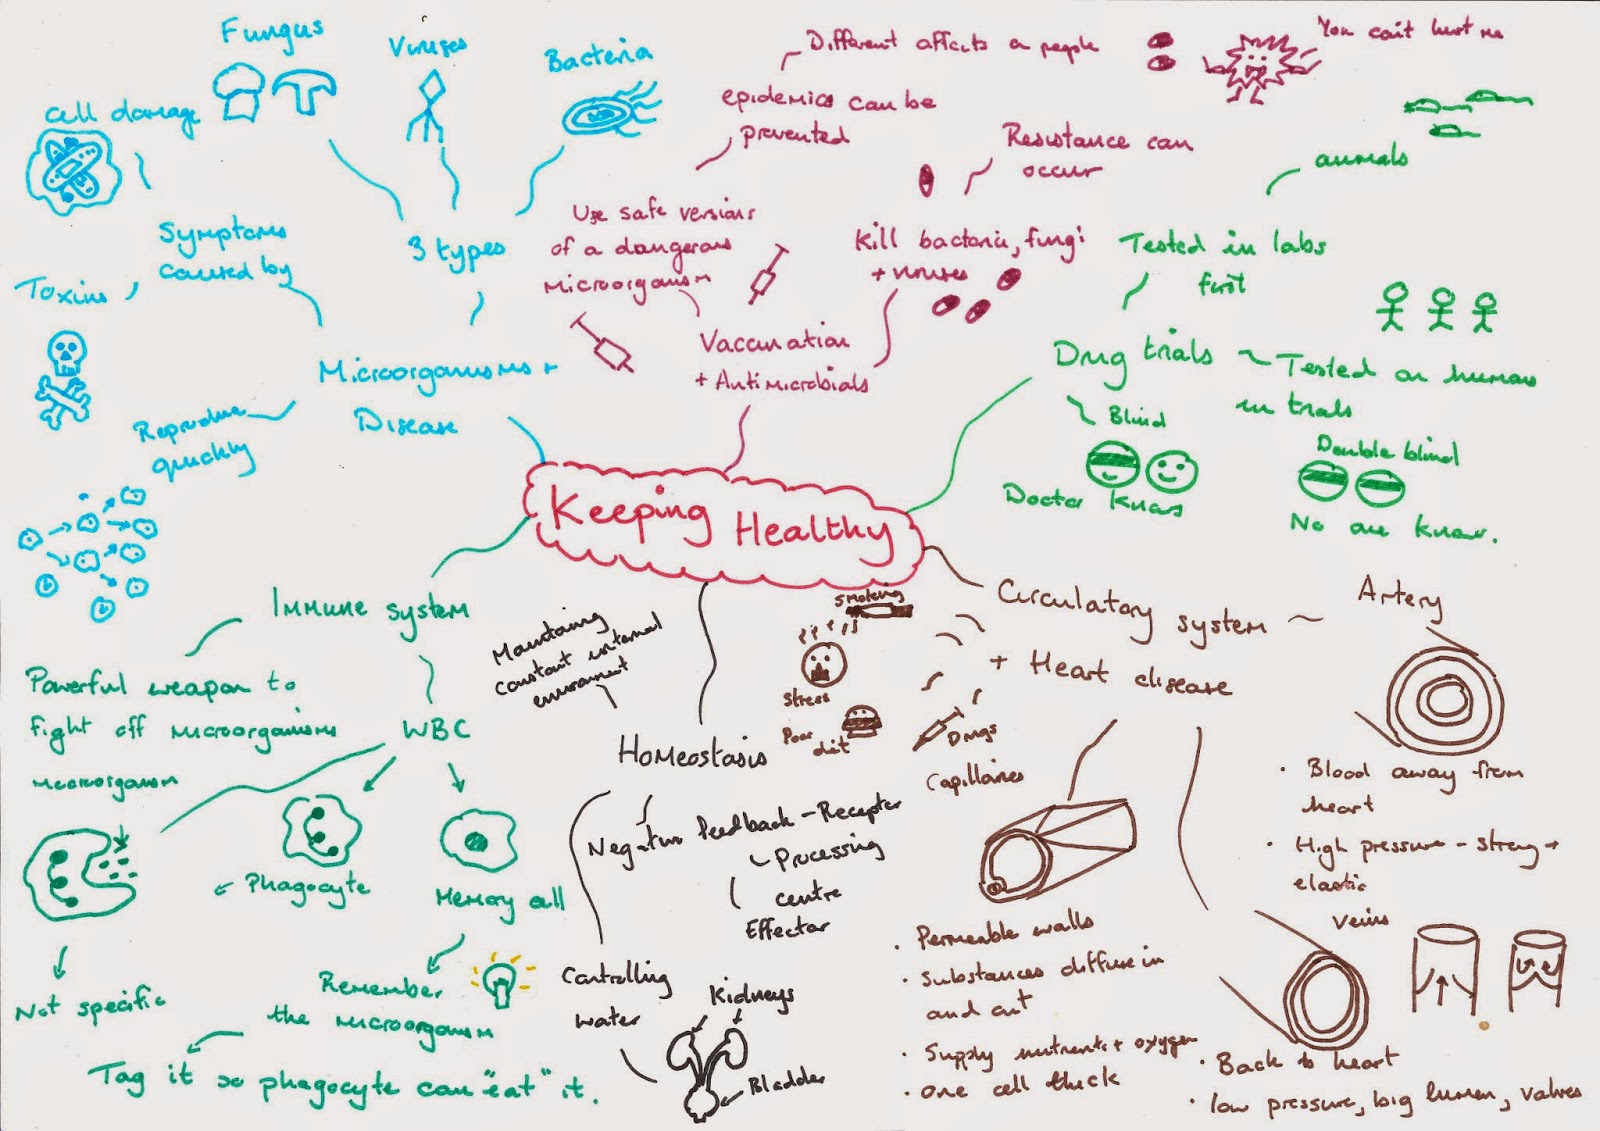 Keeping Healthy
Microorganisms +
Disease
3 types
Fungus
Viruses
Bacteria
Symptoms
caused by
cell damage
Toxins
Reproduce
quickly
Vaccination
+ Antimicrobials
Use safe versions
of a dangerous
microorganism
epidemics can be
prevented
Different affects on people
Kill bacteria, fungi
+ viruses
Resistance can
occur
You can't hurt me
Drug trials
Tested in labs
first
animals
Tested on humans
in trials
Blind
Doctor knows
Double blind
No one knows.
Circulatory system
+ Heart disease
smoking
Stress
Poor
diet
Drugs
Artery
· Blood away from
heart
· High pressure - strong +
elastic
veins
· Back to heart
· low pressure, big lumen, valves
Capillaries
· Permeable walls
· Substances diffuse in
and out
· Supply nutrients + oxygen
· one cell thick
Homeostasis
Maintaining
constant internal
environment
Negative feedback - Receptor
Processing
centre
Effector
Controlling
water
Kidneys
Bladder
Immune system
Powerful weapon to
fight off microorganisms
WBC
microorganism
Phagocyte
Not specific
Memory cell
Remember
the microorganism
Tag it so phagocyte can "eat" it.